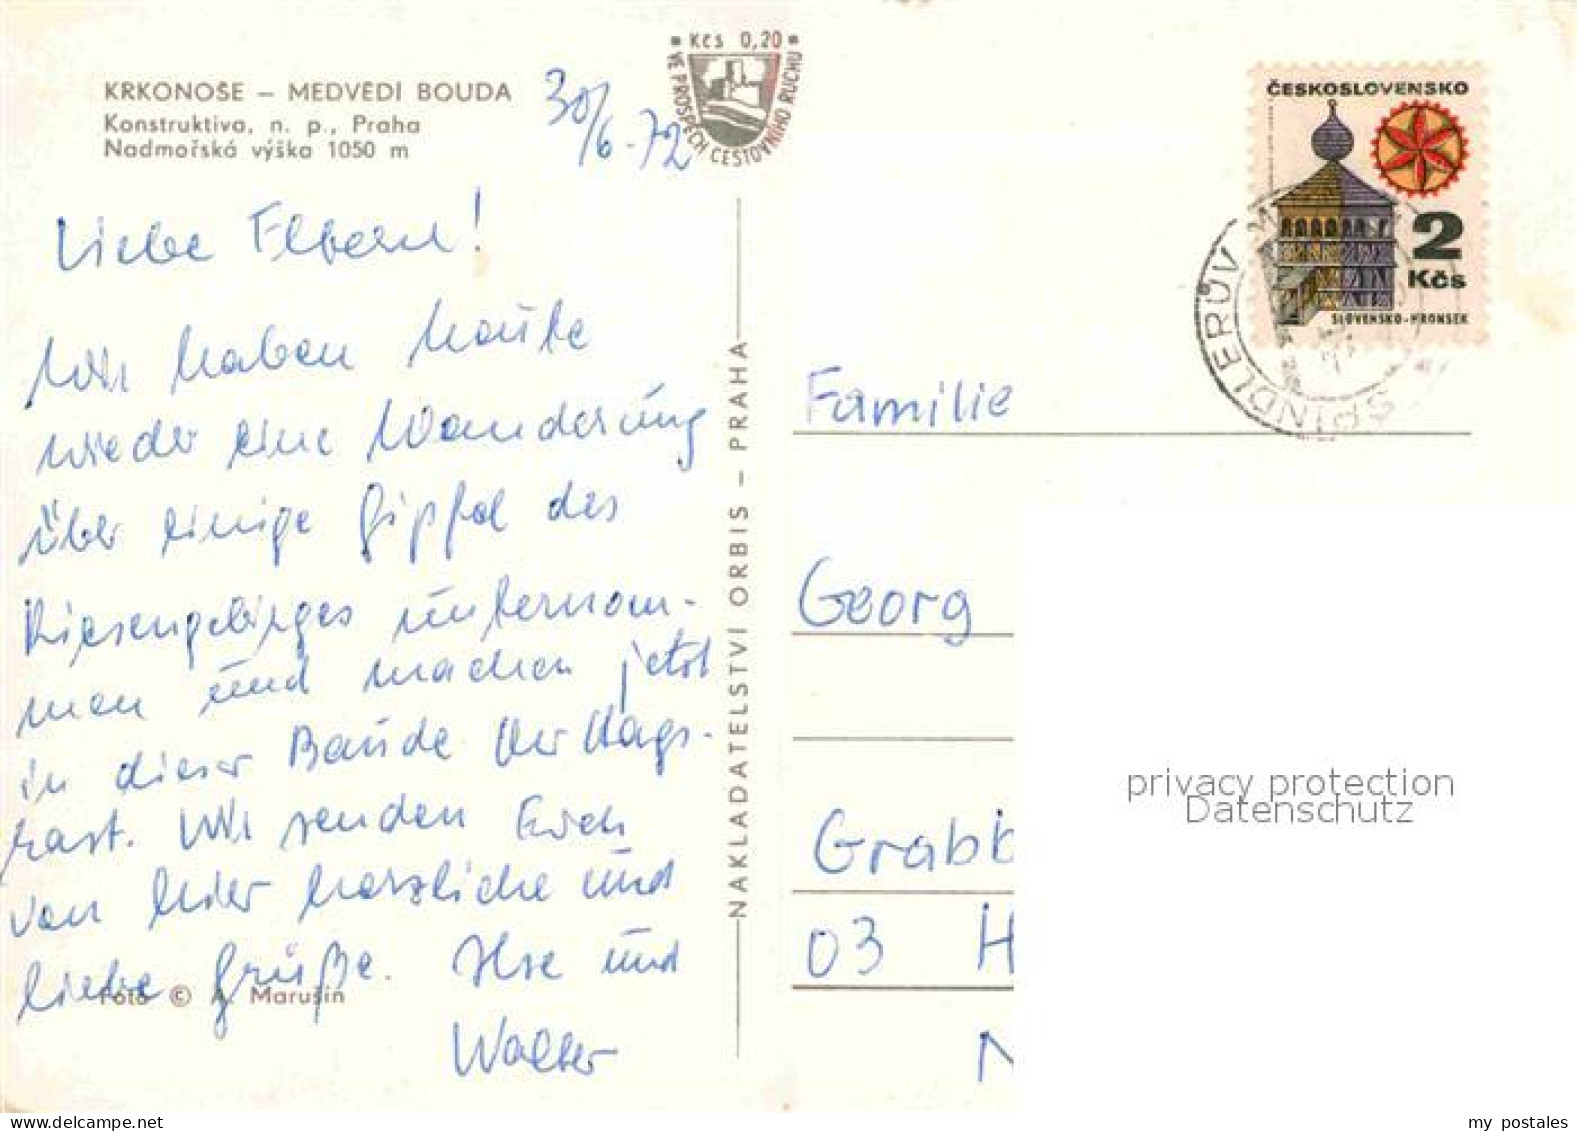 KRKONOŠE – MEDVĚDÍ BOUDA
Konstruktiva, n. p., Praha
Nadmořská výška 1050 m
30/6-72
Kčs 0,20
VE PROSPĚCH CESTOVNÍHO RUCHU
Liebe Eltern!
Wir haben heute
wieder eine Wanderung
über einige Gipfel des
Riesengebirges unternom-
men und machen jetzt
in dieser Baude Mittags-
rast. Wir senden Euch
von hier herzliche und
liebe Grüße. Ilse und
Walter
Foto © A. Marušin
NAKLADATELSTVÍ ORBIS – PRAHA
ČESKOSLOVENSKO
2
Kčs
SLOVENSKO-HRONSEK
ŠPINDLERŮV
Familie
Georg
Grabb
03 H
N
privacy protection
Datenschutz
my postales